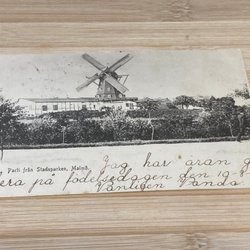 Parti från Stadsparken, Malmö.
Jag har äran g
era på födelsedagen den 19-8
Vänligen Vanda